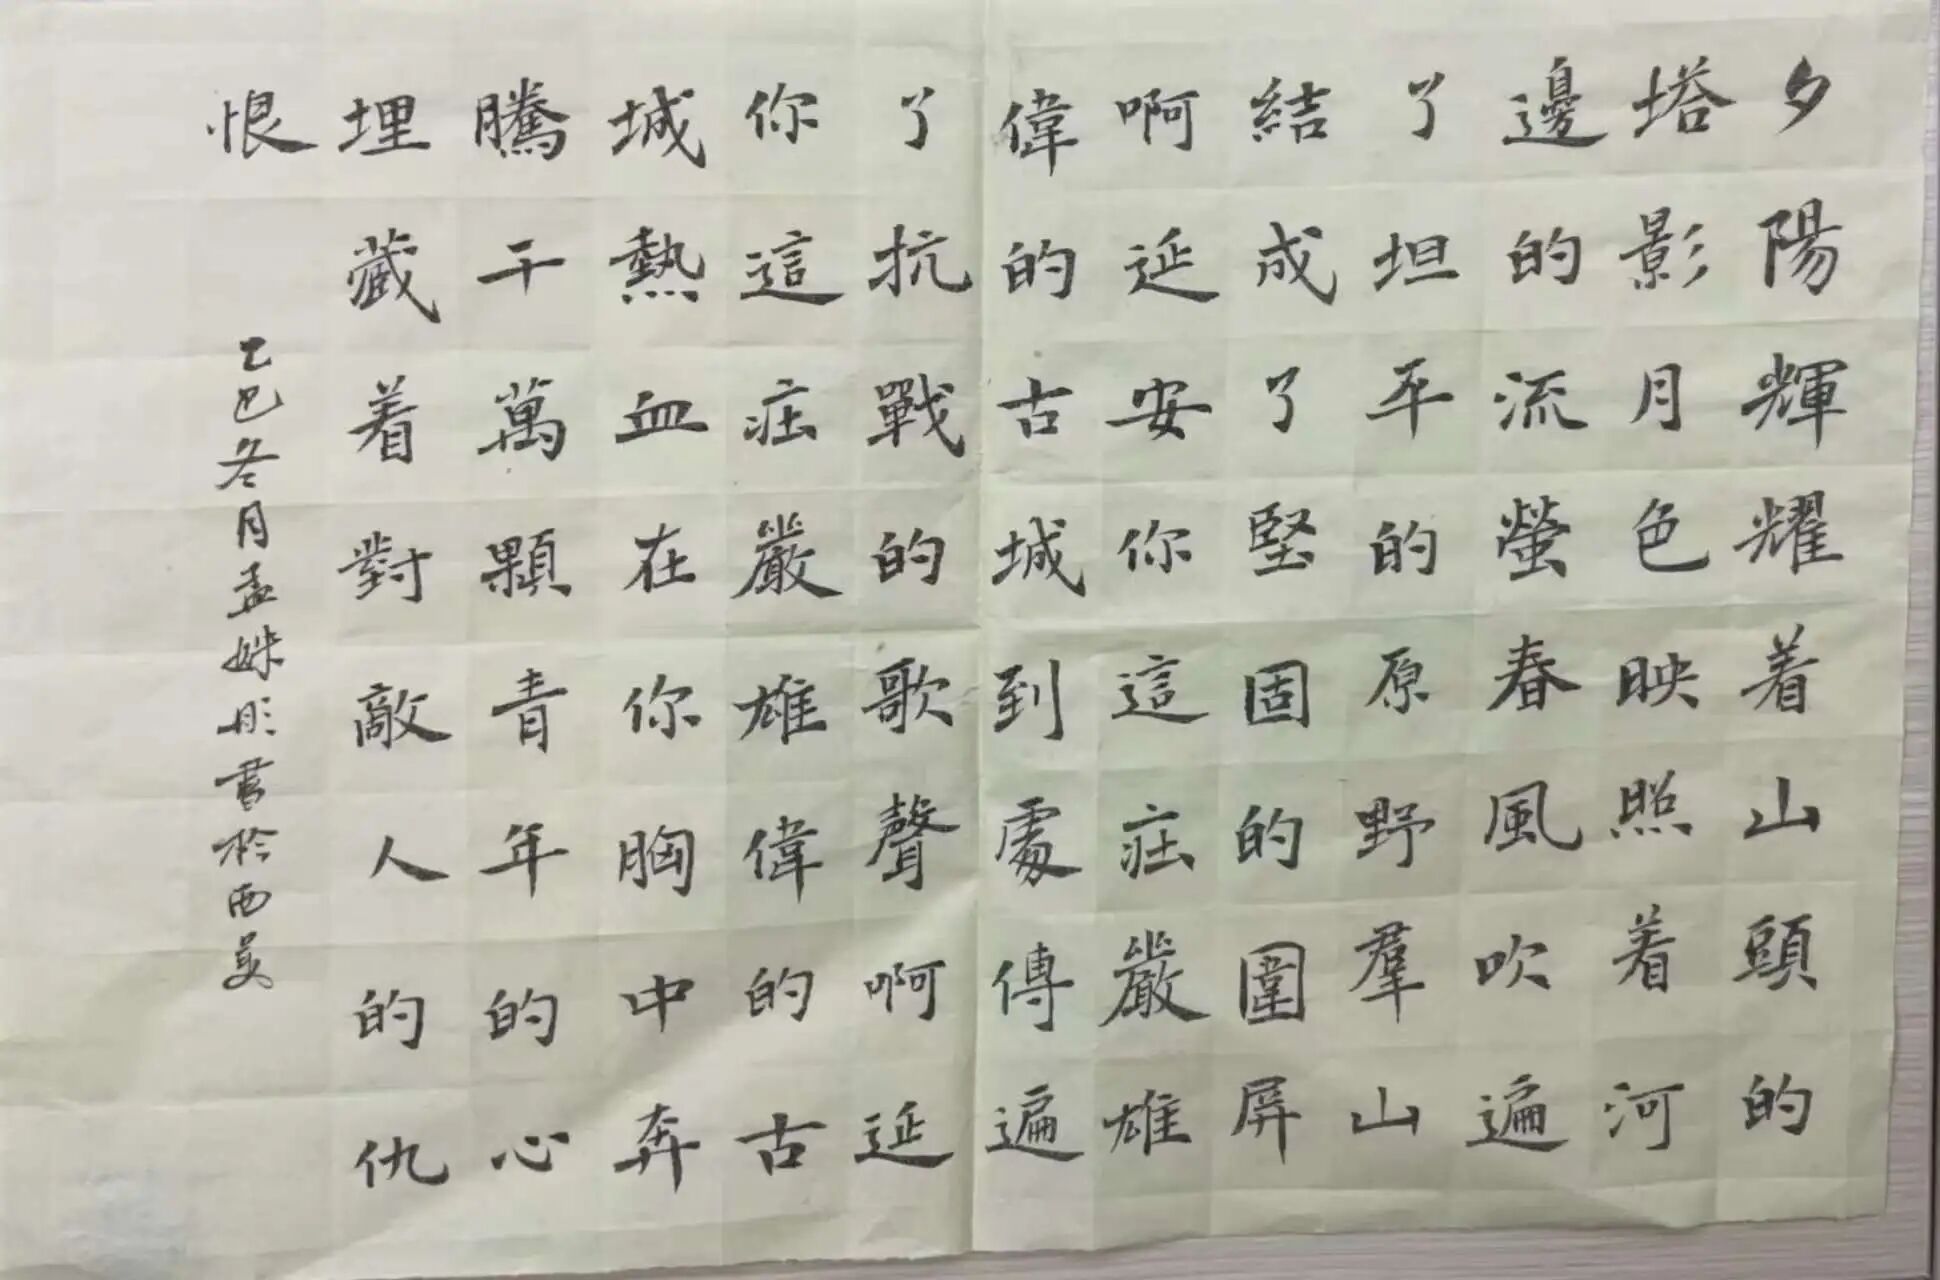 夕陽輝耀着山頭的
塔影月色映照着河
邊的流螢春風吹遍
了坦平的原野羣山
結成了堅固的圍屏
啊延安你這莊嚴雄
偉的古城到處傳遍
了抗戰的歌聲啊延
你這莊嚴雄偉的古
城熱血在你胸中奔
騰千萬顆青年的心
埋藏着對敵人的仇
恨
乙巳冬月孟姝彤書於西美